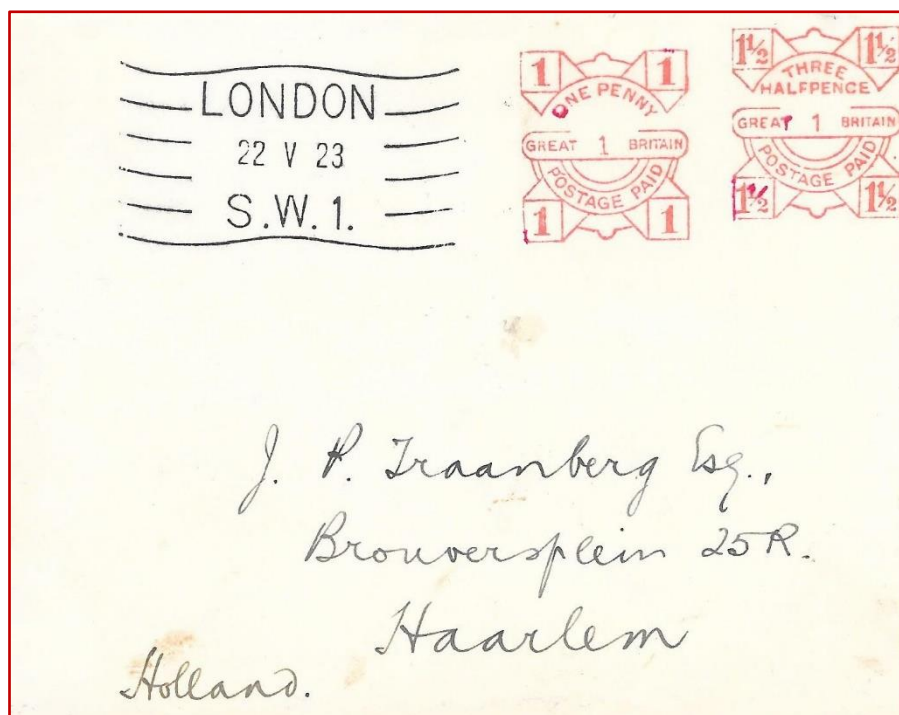 LONDON
22 V 23
S.W.1.
1 1
ONE PENNY
GREAT 1 BRITAIN
POSTAGE PAID
1 1
1½ 1½
THREE
HALFPENCE
GREAT 1 BRITAIN
POSTAGE PAID
1½ 1½
J. P. Traanberg Esq.,
Brouwersplein 25R.
Haarlem
Holland.